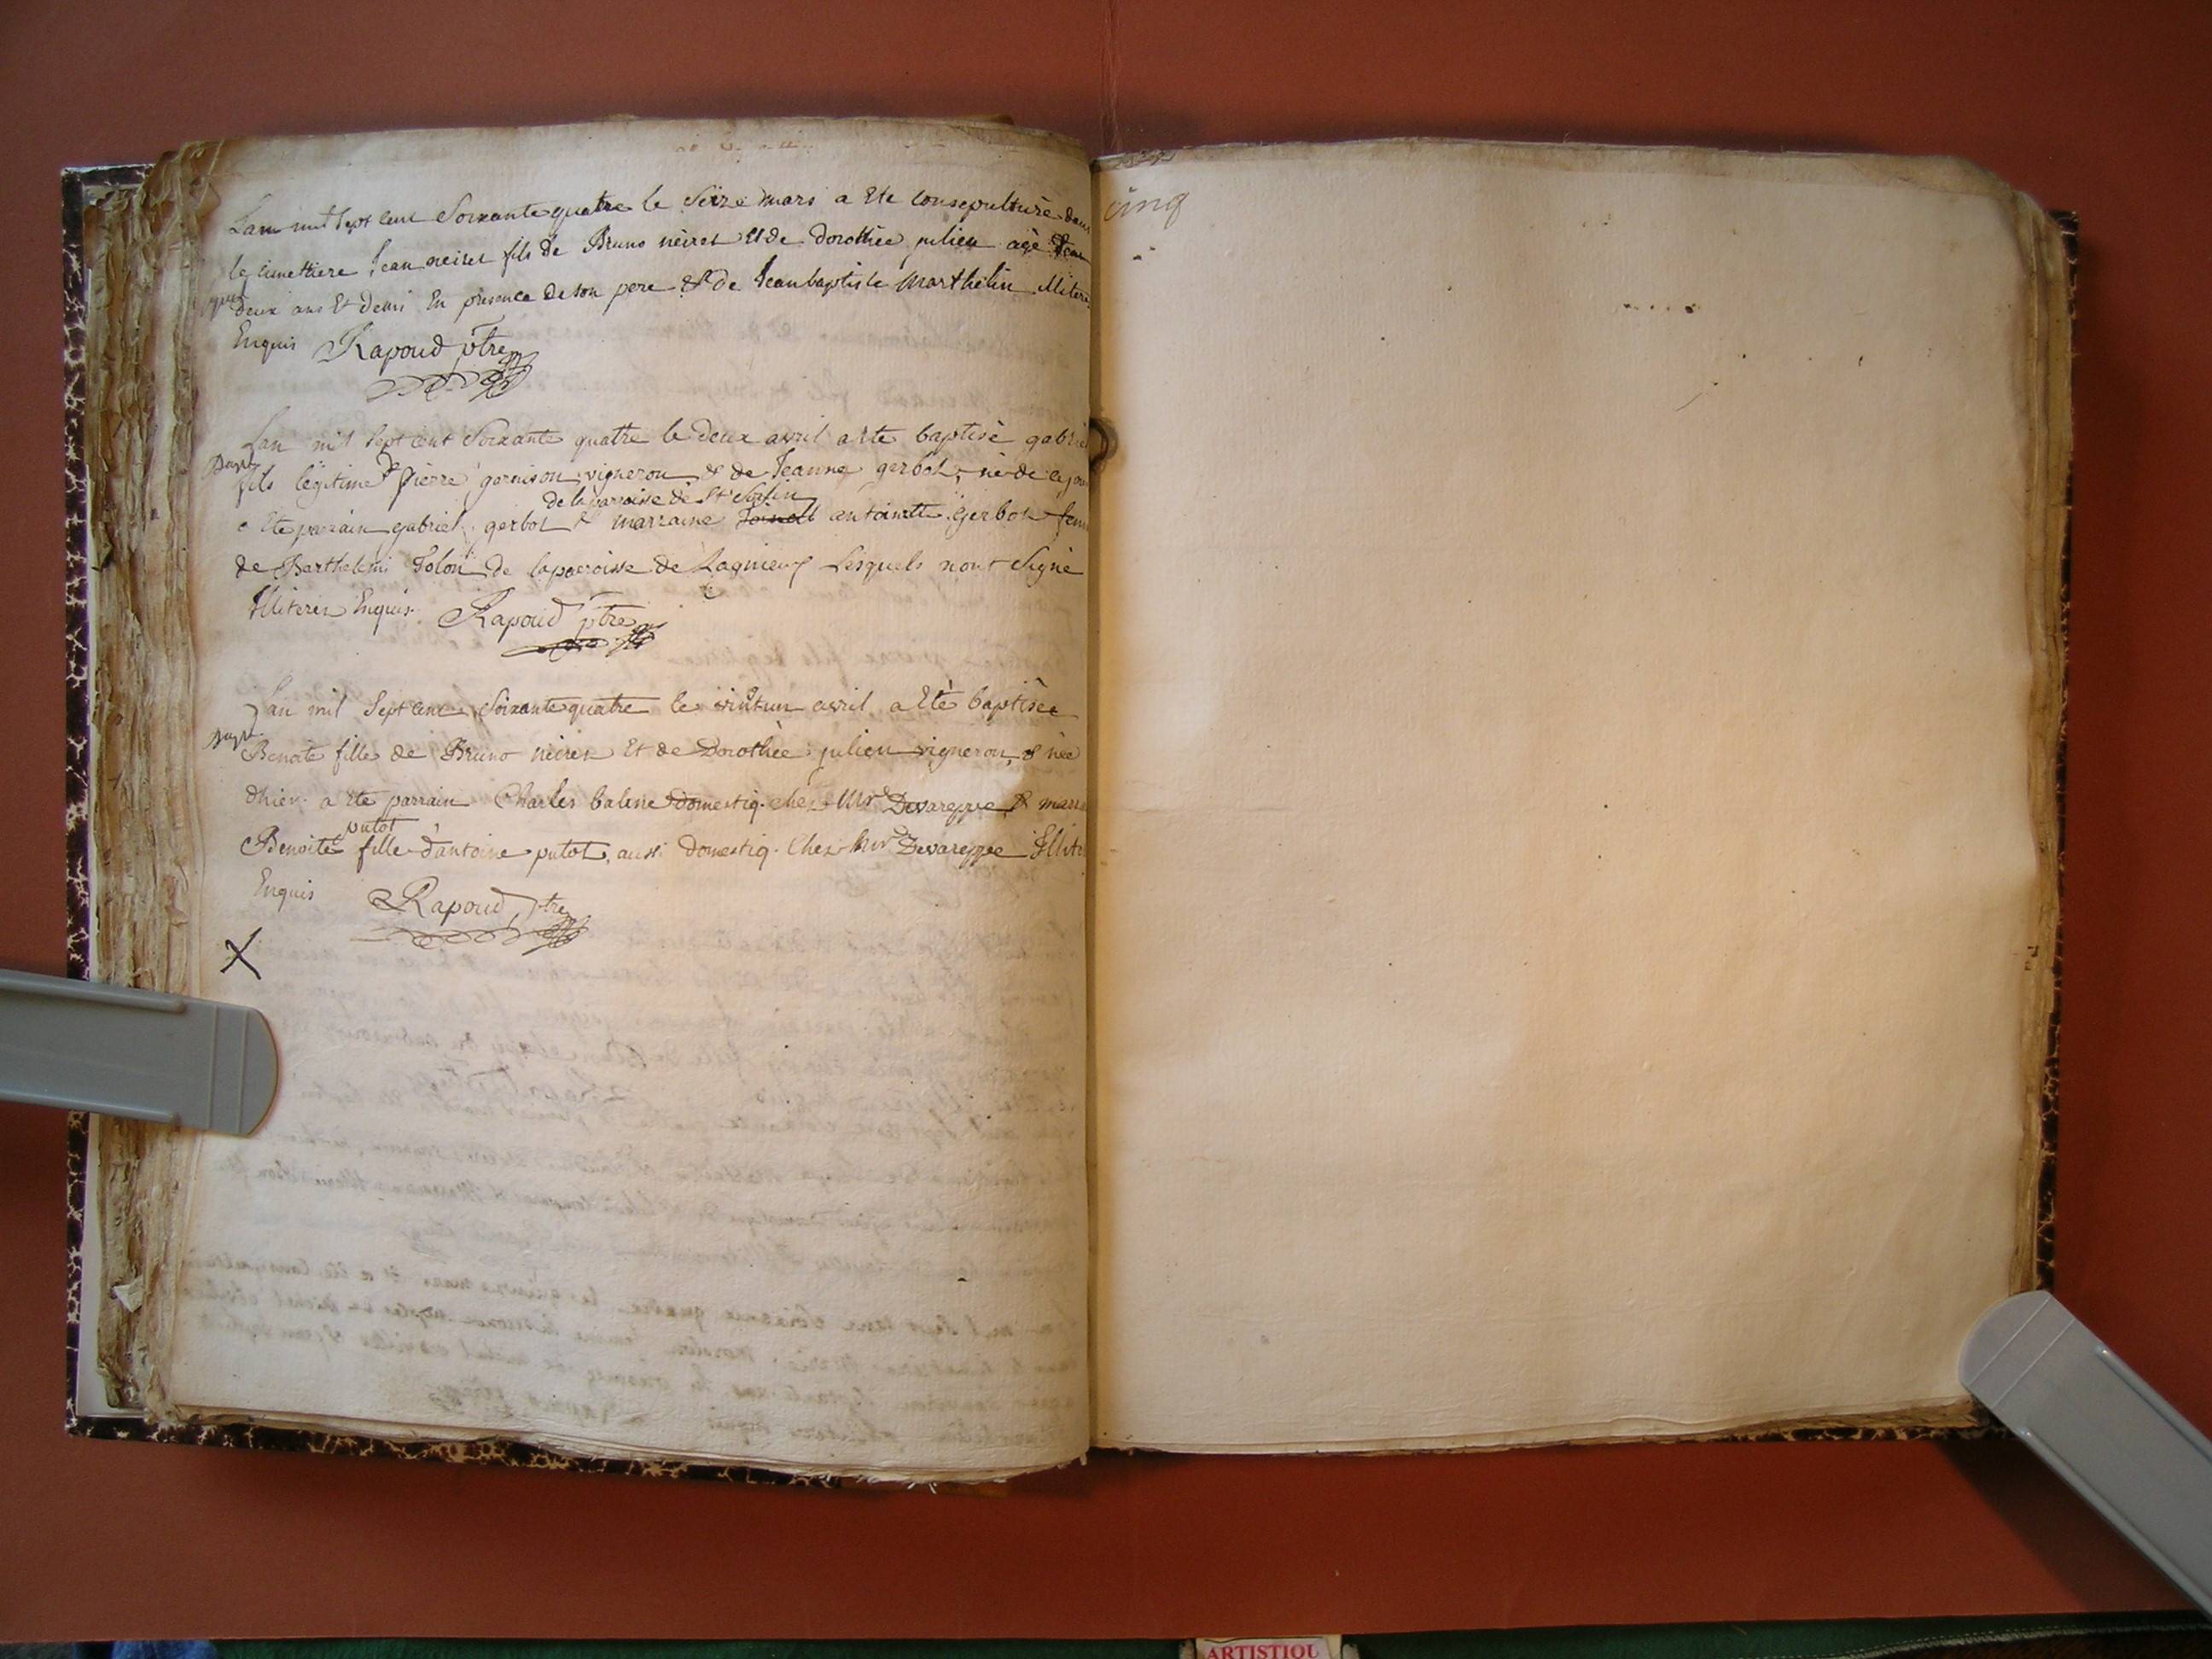 Lan mil sept cent Soixante quatre le Seize mars a Ete consepulturé dans
le cimettiere Jean neiret fils de Bruno nèiret Et de dorothée julien agé
deux ans Et demi En présence de son pere & de Jean baptiste Marthelin Illiteré
Enquis Rapoud ptre
Lan mil sept cent Soixante quatre le deux avril a ete baptisé gabriel
Bapt
fils légitime de Pierre garnison vigneron & de Jeanne gerbot, né de ce jour
de la parroisse de St Sorlin
a Ete parrain gabriel gerbot & marraine antoinette Gerbot fem
de Barthelemi Tolon de la parroisse de Lagnieux Lesquels nont Signé
Illiterés Enquis. Rapoud ptre
Lan mil Sept cent Soixante quatre le vintun avril a Eté baptisée
Bapt
Benoite fille de Bruno neiret Et de Dorothée julien vigneron, & née
dhier a ete parrain Charles balene domestiq. chez Mr Devareppe & marr
putot
Benoite fille d'antoine putot, aussi domestiq. Chez Mr Devareppe Illite
Enquis Rapoud ptre
X
cinq
ARTISTIQU